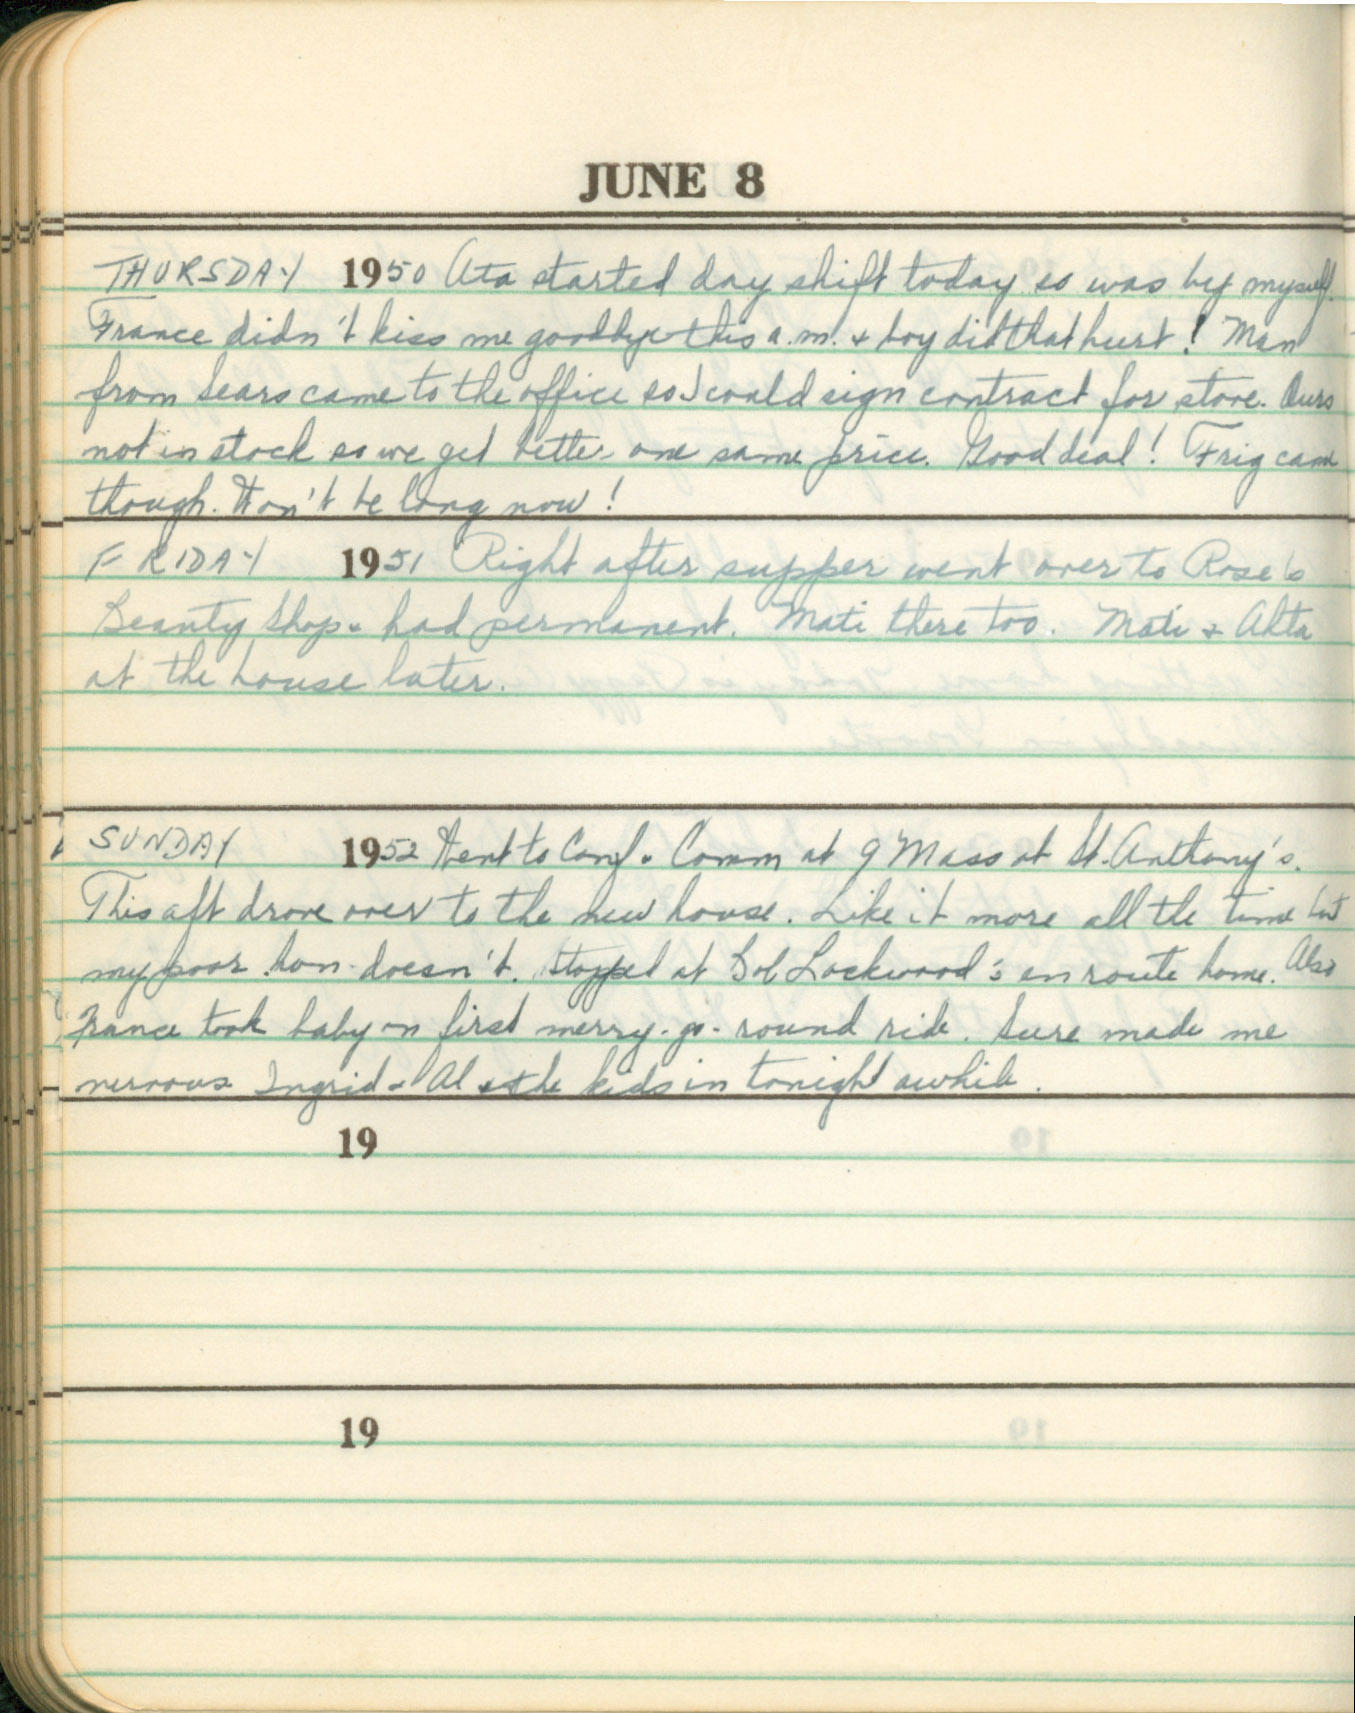 JUNE 8
THURSDAY 1950 Ata started day shift today so was by myself.
France didn't kiss me goodbye this a.m. & boy did that hurt! Man
from Sears came to the office so I could sign contract for stove. Ours
not in stock so we get better one same price. Good deal! Frig came
though. Won't be long now!
FRIDAY 1951 Right after supper went over to Rose's
Beauty Shop & had permanent. Mati there too. Mati &
at the house later.
SUNDAY 1952 Went to Conf & Comm at 9 Mass at St. Anthony's.
This aft drove over to the new house. Like it more all the time but
my poor hon doesn't. Stopped at Bob Lockwood's enroute home. Also
France took baby on first merry-go-round ride. Sure made me
nervous. Ingrid & Al & the kids in tonight awhile.
19
19